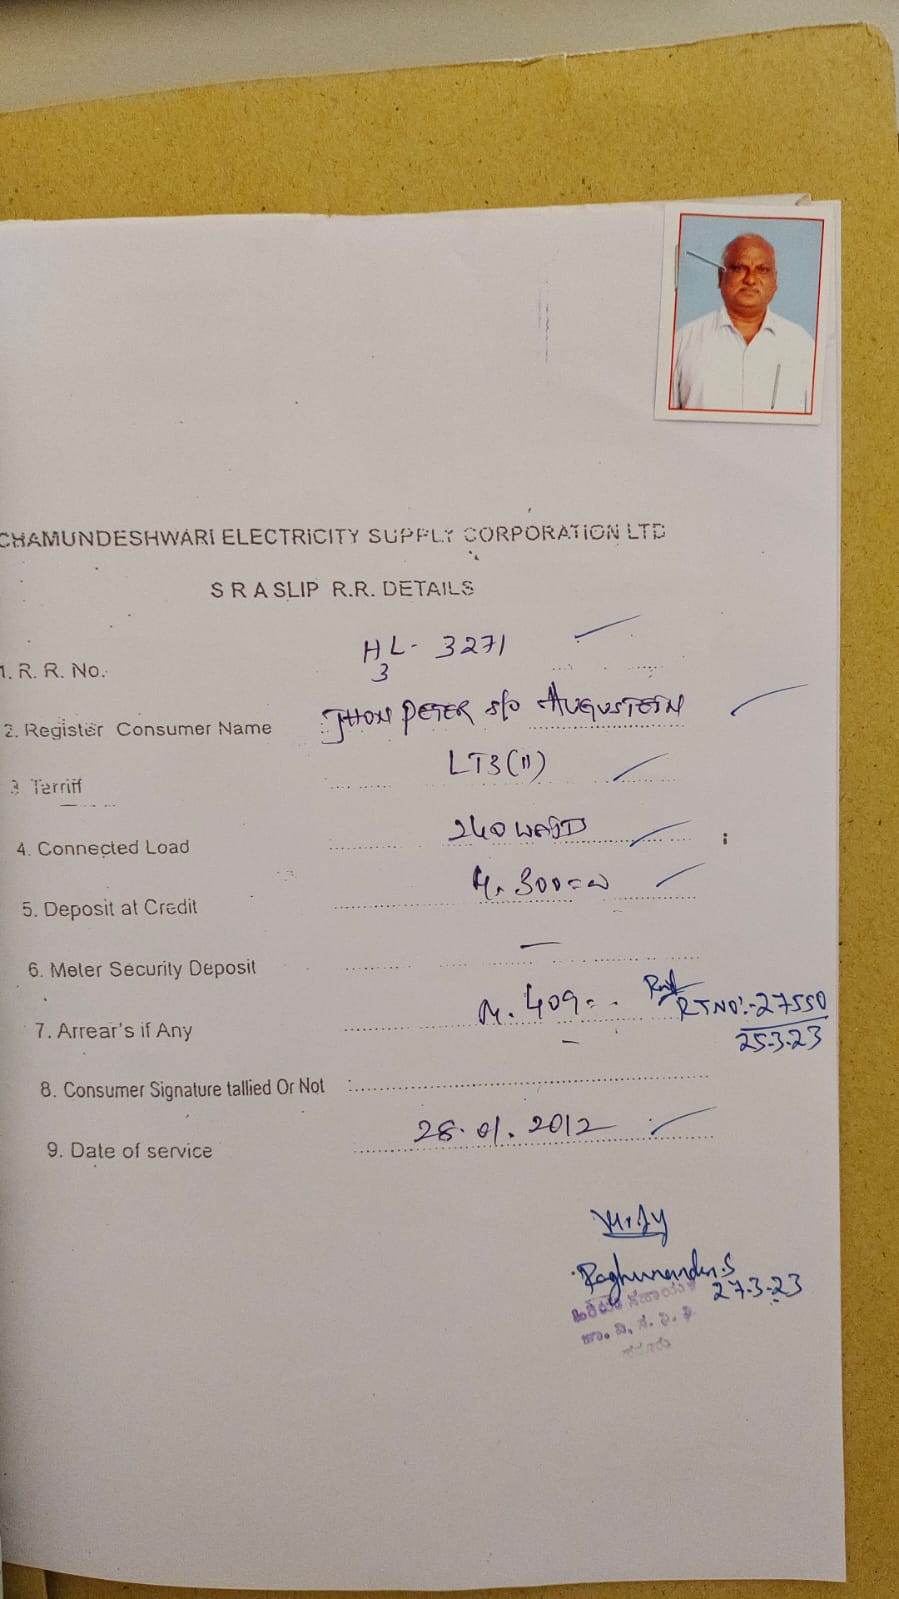 CHAMUNDESHWARI ELECTRICITY SUPPLY CORPORATION LTD
S R A SLIP R.R. DETAILS
1. R. R. No. HL- 3271
3
2. Register Consumer Name JHON PETER S/o AUGUSTEIN
3 Tarriff LT3(ii)
4. Connected Load 240
5. Deposit at Credit 300=
6. Meter Security Deposit —
7. Arrear's if Any 409=. RTNO:-27550
25.3.23
8. Consumer Signature tallied Or Not :
9. Date of service 28.01.2012
Raghunandan.S
27.3.23
ಹಿರಿಯ ಸಹಾಯಕ